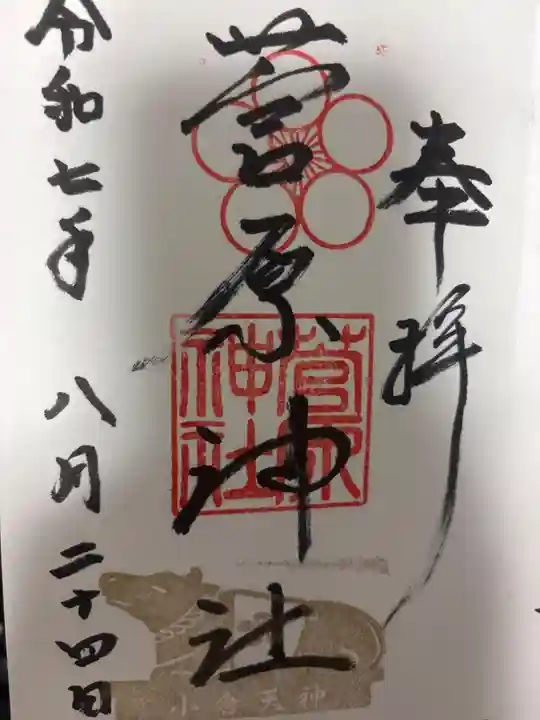 奉拝
菅原神社
菅原神社
令和七年八月二十四日
小倉天神